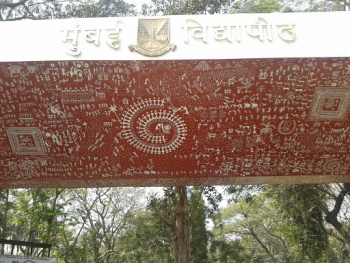 मुंबई विद्यापीठ